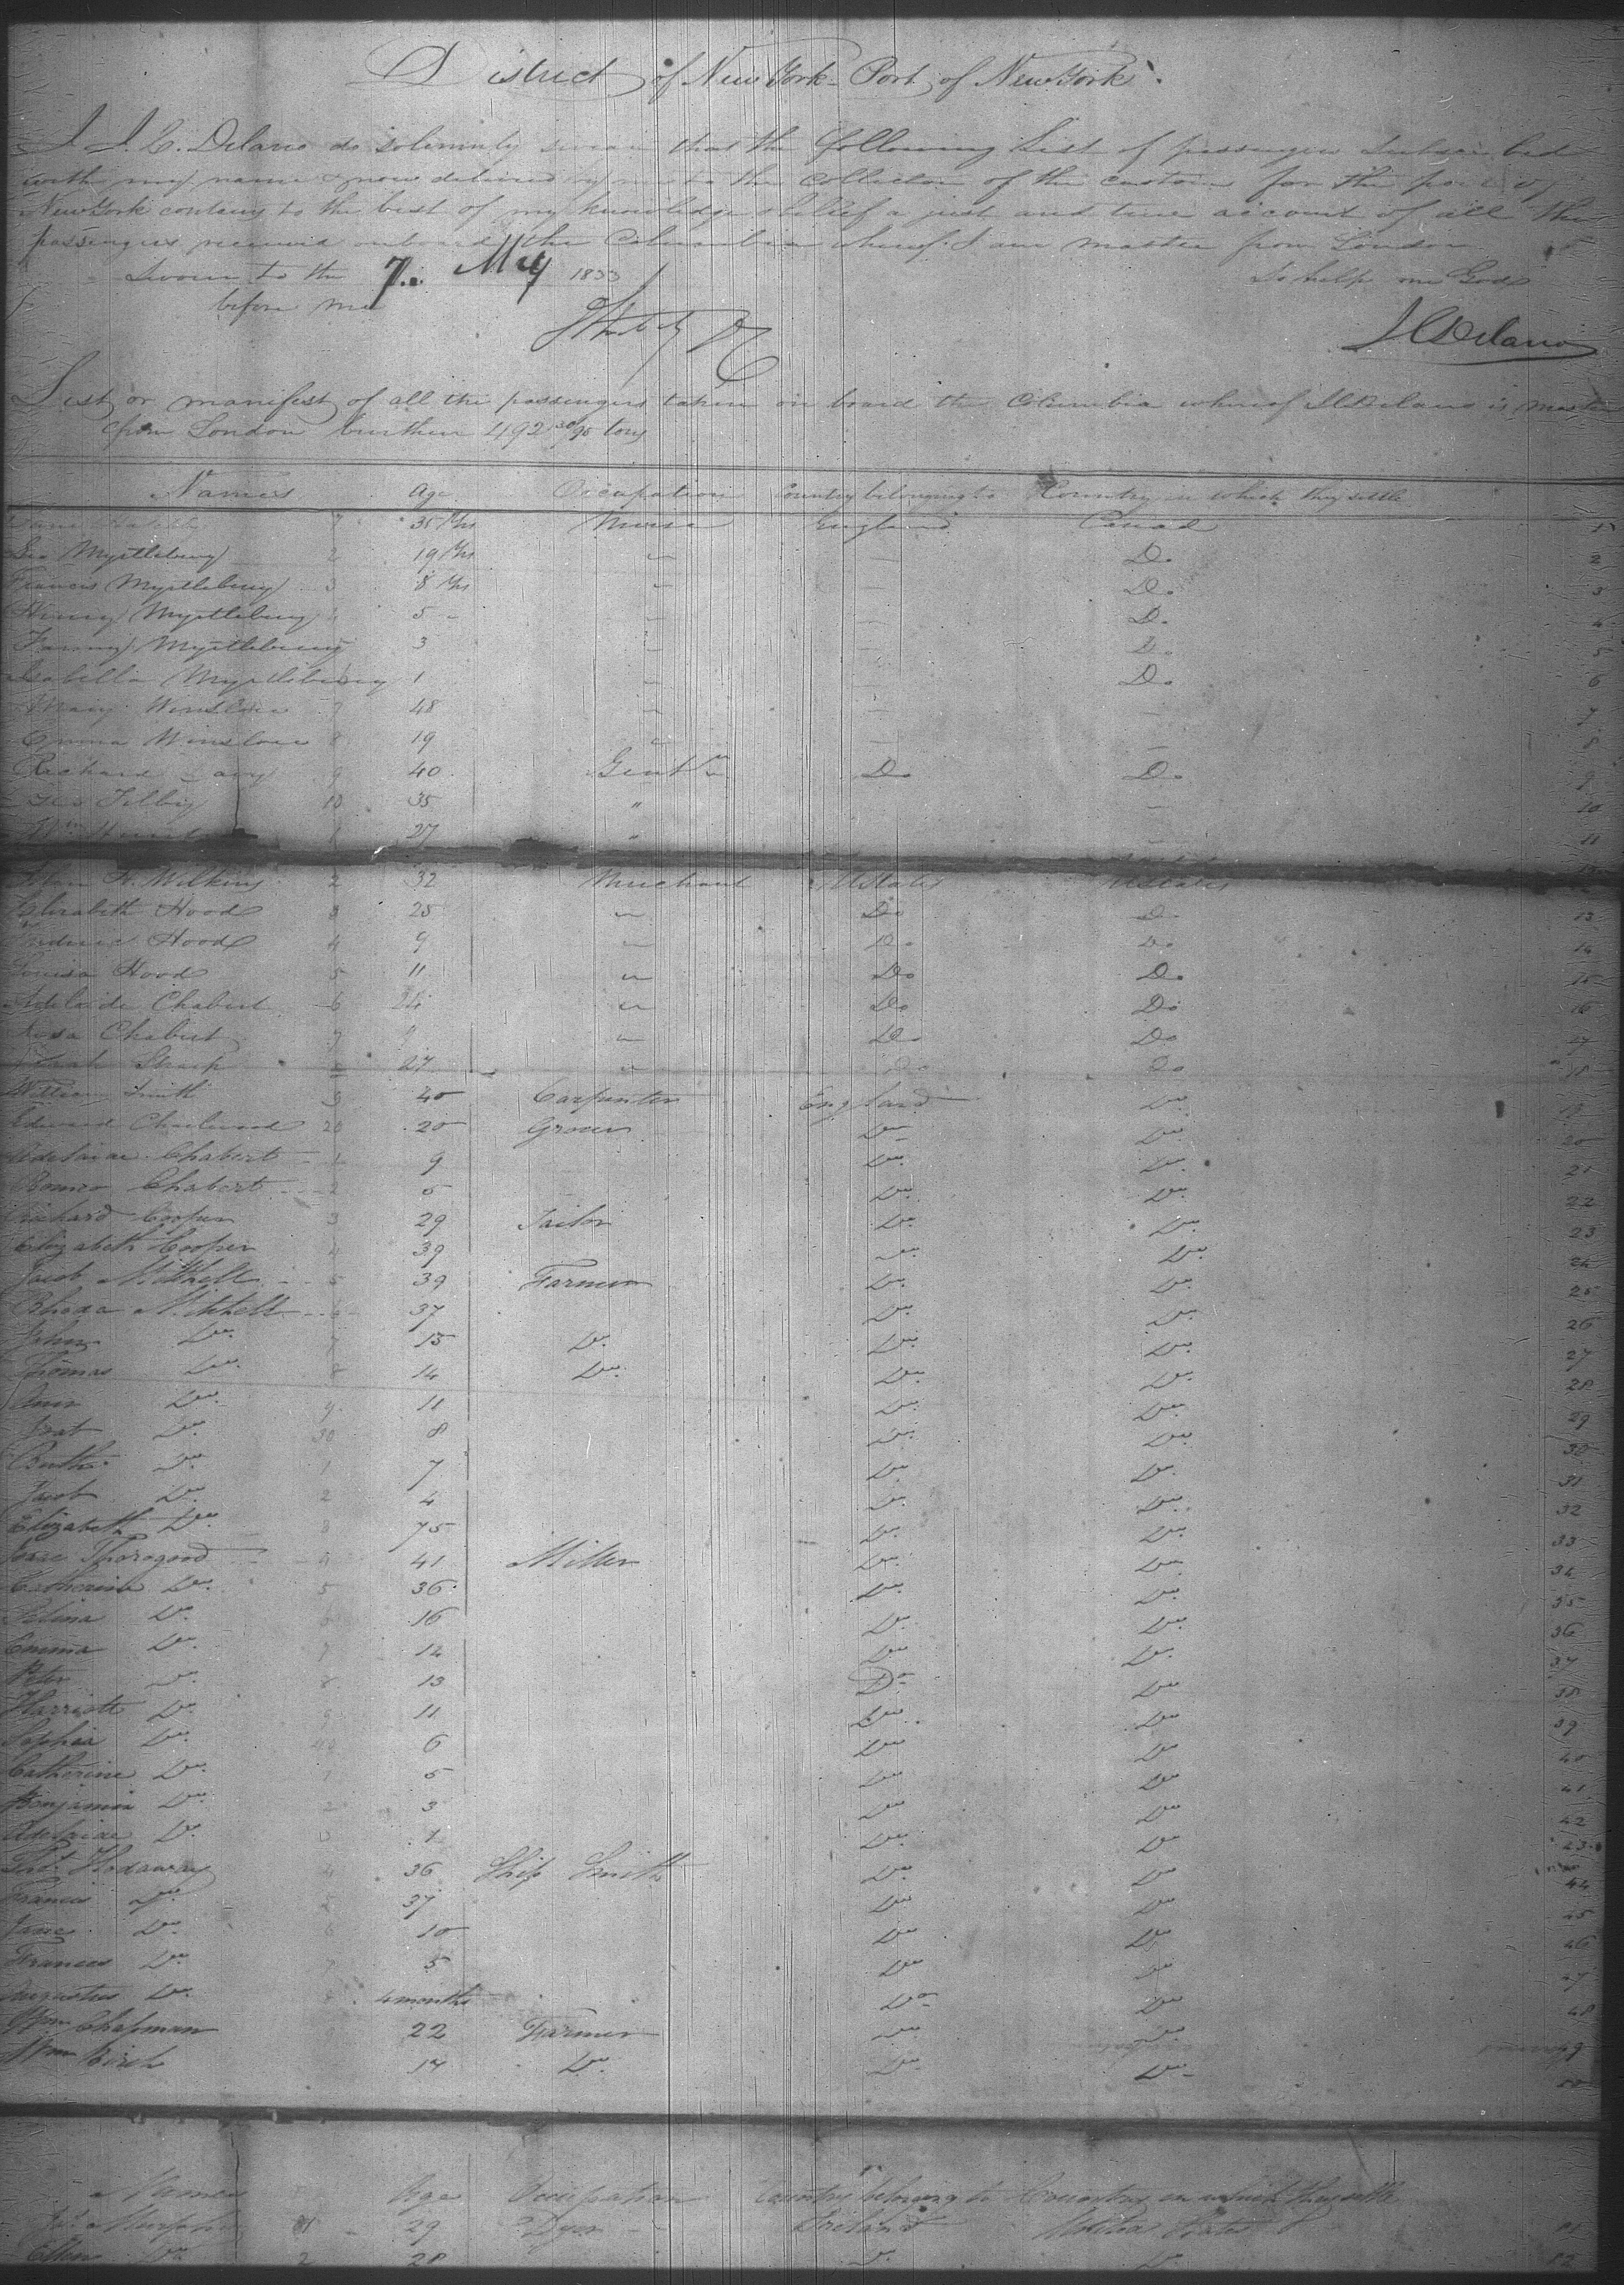 District of New York - Port of New York
I J. C. Delano do solemnly swear that the following List of passengers Subscribed
with my name & now delivered by me to the Collector of the customs for the port of
New York contains to the best of my knowledge & belief a just and true account of all the
passengers received onboard the Columbia whereof I am master from London
Sworn to the 7. May 1833 So help me God
before me
J C Delano
List or manifest of all the passengers taken on board the Columbia whereof J C Delano is master
from London burthen 492 30/95 tons
Names Age Occupation Country belonging to Country in which they settle
35 Yrs England Canad 1
Geo Myrtleburg 2 19 Yrs " — Do 2
Francis Myrtleburg 3 8 Yrs " — Do 3
Henry Myrtleburg 4 5 " " — Do 4
Fanny Myrtleburg 5 3 " — Do 5
Isabella Myrtleburg 6 1 " — Do 6
Mary Winslow 7 48 " — — 7
Emma Winslow 8 19 " — — 8
Richard 9 40 Gentn Do Do 9
Geo Tilby 10 35 " — 10
Wm 1 27 " — 11
H. Wilkins 2 32 Merchant UStates UStates
Elizabeth Hood 3 25 " Do Do 13
Hood 4 9 " Do Do 14
Louisa Hood 5 11 " Do Do 15
Adelaide Chabert 6 24 " Do Do 16
Rosa Chabert 7 " " Do Do 17
Sarah Sharp 27 " Do Do 18
William Smith 9 40 Carpenter England Do 19
Edward Charlwood 20 20 Grocer Do Do 20
Adelaide Chabert 1 9 Do Do 21
Romeo Chabert 2 5 Do Do 22
Richard Cooper 3 29 Tailor Do Do 23
Elizabeth Cooper 4 39 Do Do 24
Jacob Mitchell 5 39 Farmer Do Do 25
Rhoda Mitchell 6 37 Do Do 26
John Do 7 15 Do Do Do 27
Thomas Do 8 14 Do Do Do 28
Ann Do 9 11 Do Do 29
Do 30 8 Do Do 30
Ruth Do 1 7 Do Do 31
Jacob Do 2 4 Do Do 32
Elizabeth Do 3 75 Do Do 33
Isaac Thorogood 4 41 Miller Do Do 34
Catherine Do 5 36 Do Do 35
Selina Do 6 16 Do Do 36
Emma Do 7 14 Do Do 37
Peter Do 8 13 Do Do 38
Harriott Do 9 11 Do Do 39
Sophia Do 40 6 Do Do 40
Catherine Do 1 5 Do Do 41
Benjamin Do 2 3 Do Do 42
Adelaide Do 3 1 Do Do 43
Hodaway 4 36 Ship Smith Do Do 44
Frances Do 5 37 Do Do 45
Jane Do 6 10 Do Do 46
Frances Do 7 5 Do Do 47
Augustus Do 8 4 months Do Do 48
Wm Chapman 22 Farmer Do Do
Wm Birch 17 Do Do Do 50
Names Age Occupation Country belonging to Country in which they settle
Murphy 51 29 Dyer Ireland United States 51
Ellen Do 2 28 Do Do 52